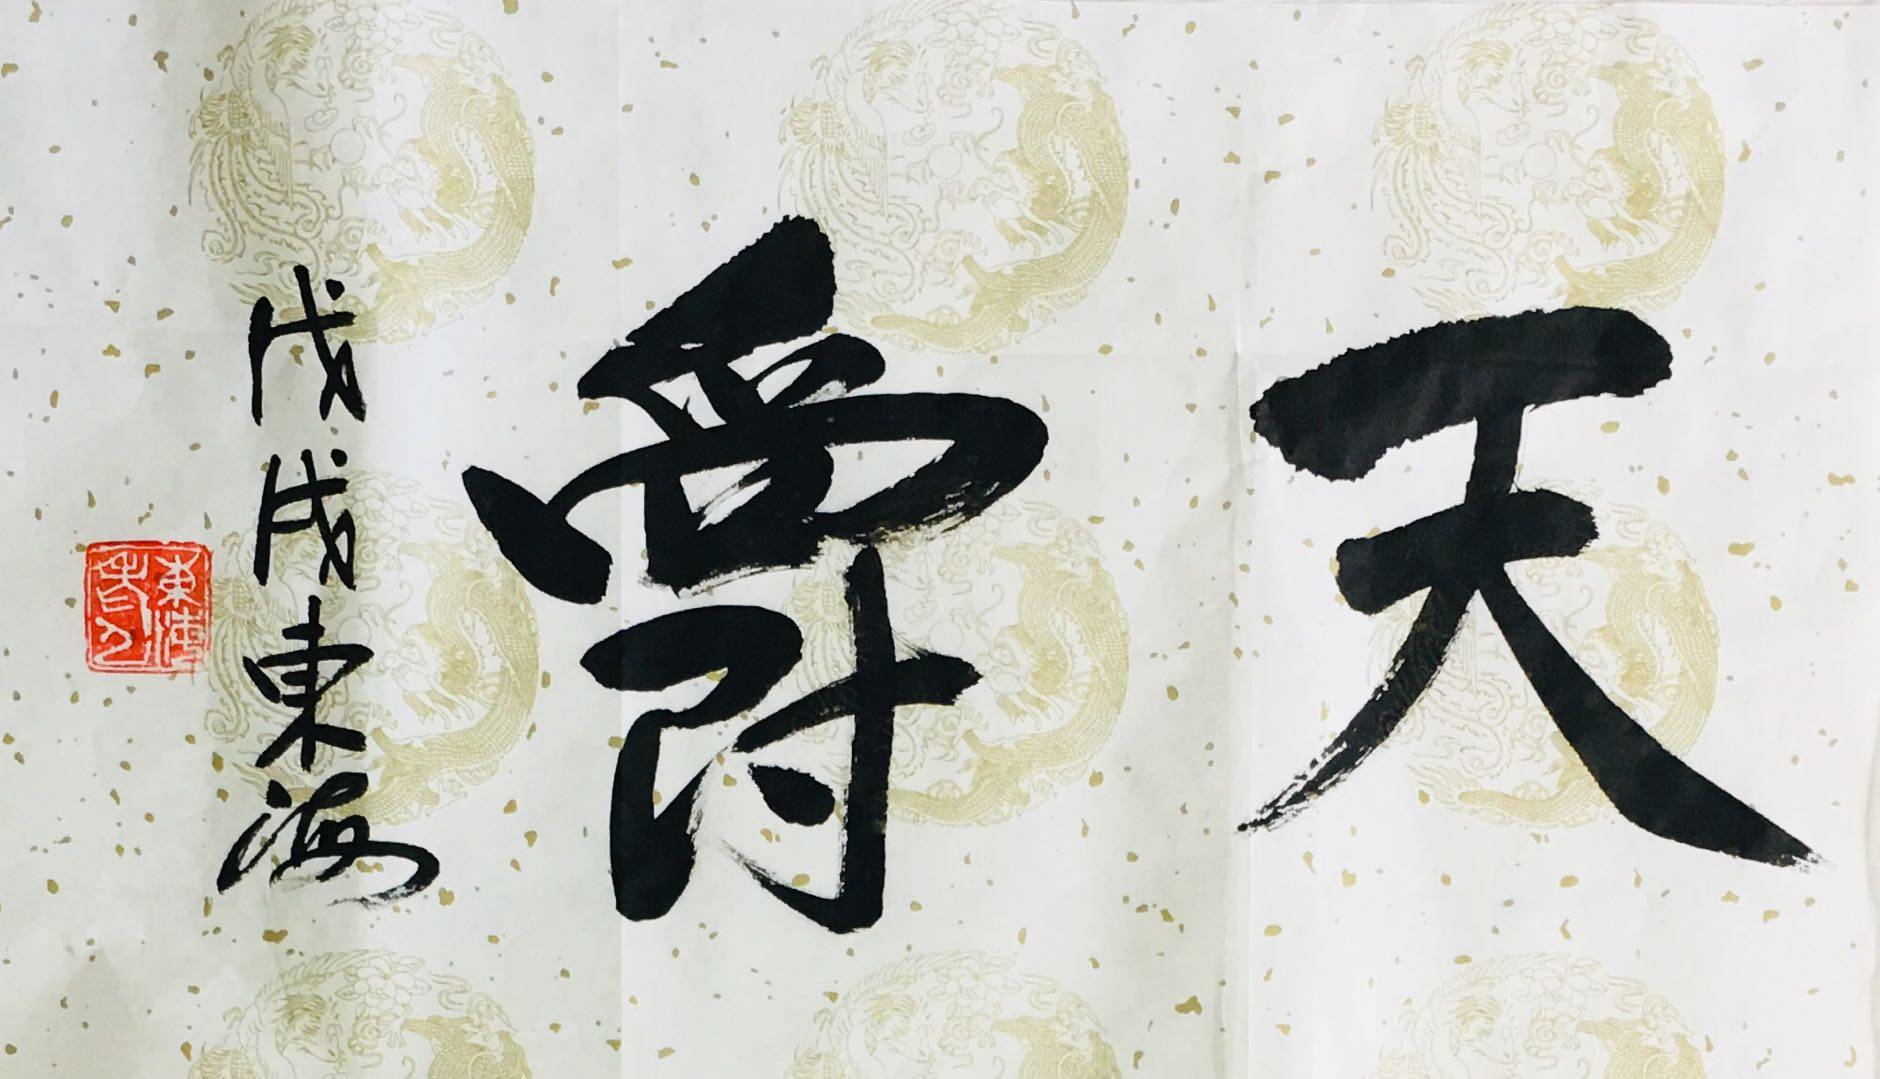 天爵
戊戌東海
東海